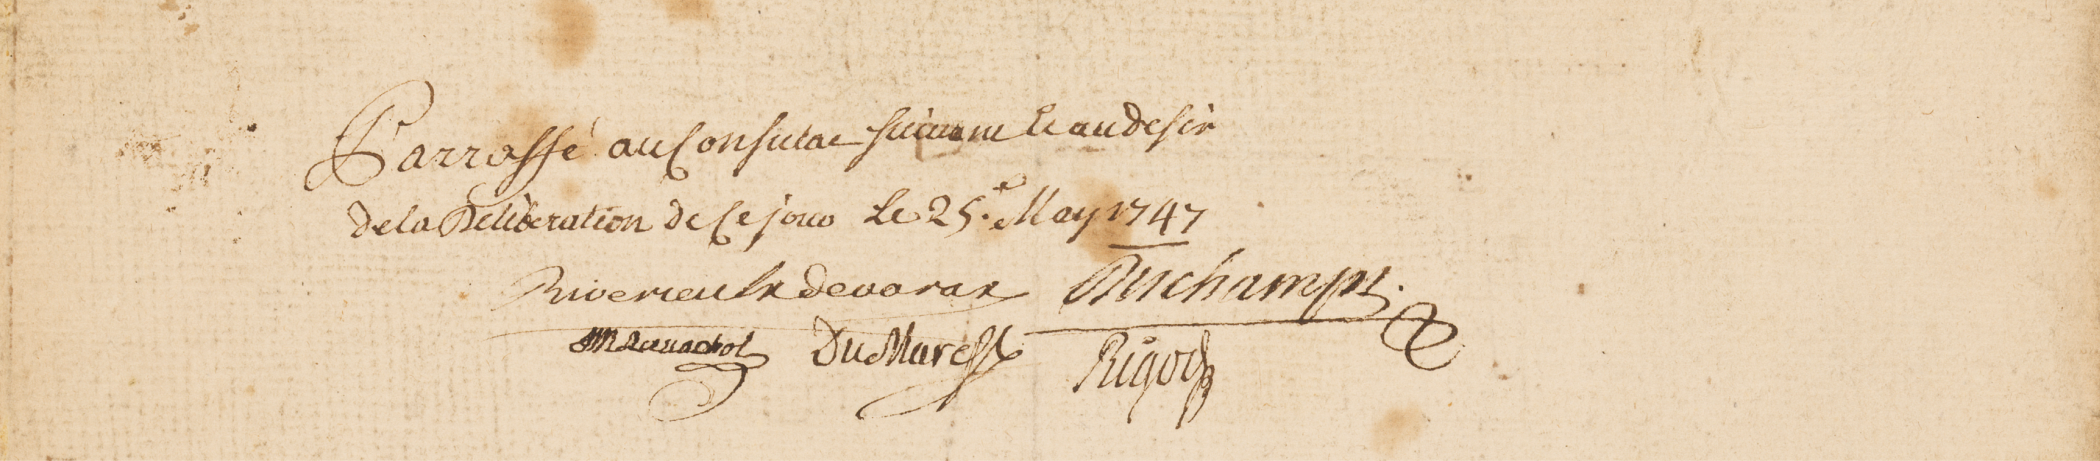 Parraffé au Consulat suivant Et au desir
de la Deliberation de Ce jour Le 25.e May 1747
Riverieulx devarax Duchamps.
DuMarest Rigod